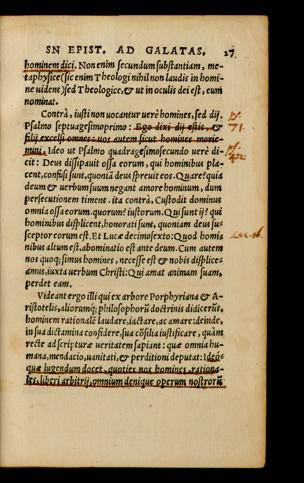 SN EPIST. AD GALATAS. 27
hominem dici. Non enim secundum substantiam, me-
taphysice (sic enim Theologi nihil non laudis in homi-
ne uident) sed Theologice, & ut in oculis dei est, eum
nominat.
Contrà, iusti non uocantur uerè homines, sed dij.
Psalmo septuagesimoprimo: Ego dixi dij estis, &
filij excelsi omnes: uos autem sicut homines morie-
mini. Ideo ut Psalmo quadragesimosecundo uerè di-
cit: Deus dissipauit ossa eorum, qui hominibus pla-
cent, confisi sunt, quoniã deus spreuit eos. Quare? quia
deum & uerbum suum negant amore hominum, dum
persecutionem timent. ita contrà, Custodit dominus
omnia ossa eorum. quorum? iustorum. Qui sunt ij? qui
hominibus displicent, honorati sunt, quoniam deus su-
sceptor eorum est. Et Lucæ decimosexto: Quod homi
nibus altum est, abominatio est ante deum. Cum autem
nos quoq; simus homines, necesse est & nobis displice-
amus, iuxta uerbum Christi: Qui amat animam suam,
perdet eam.
Videant ergo illi qui ex arbore Porphyriana & A-
ristotelis, aliorumq; philosophorũ doctrinis didicerũt,
hominem rationalẽ laudare, iactare, ac amare: deinde,
in sua dictamina confidere, sua cõsilia iustificare, quàm
rectè ad scripturæ ueritatem sapiant: quæ omnia hu-
mana, mendacio, uanitati, & perditioni deputat: Ideó-
quæ lugendum docet, quoties nos homines, rationa-
les, liberi arbitrij, omnium denique operum nostrorũ
Ps.
71.
Ps.
42.
Luc. 16.